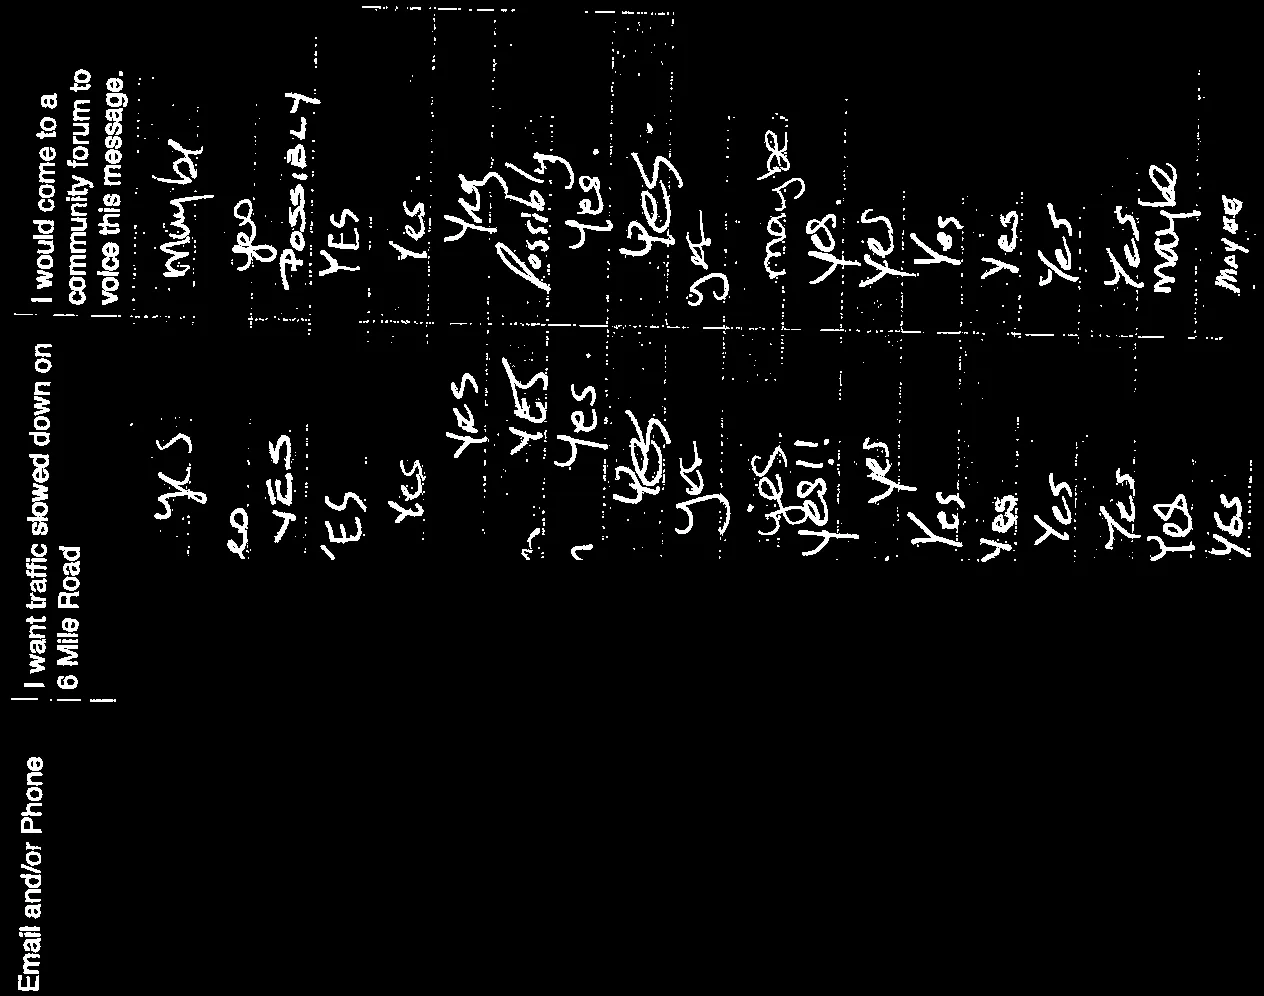 Email and/or Phone
I want traffic slowed down on
6 Mile Road
I would come to a
community forum to
voice this message.
yes Maybe
es yes
YES POSSIBLY
ES YES
Yes Yes.
Yes Yes
YES Possibly
Yes. Yes.
Yes Yes.
yes yes
yes maybe
Yes!! Yes.
yes Yes
Yes Yes
Yes Yes
Yes Yes
Yes Yes
Yes maybe
Yes MAYBE